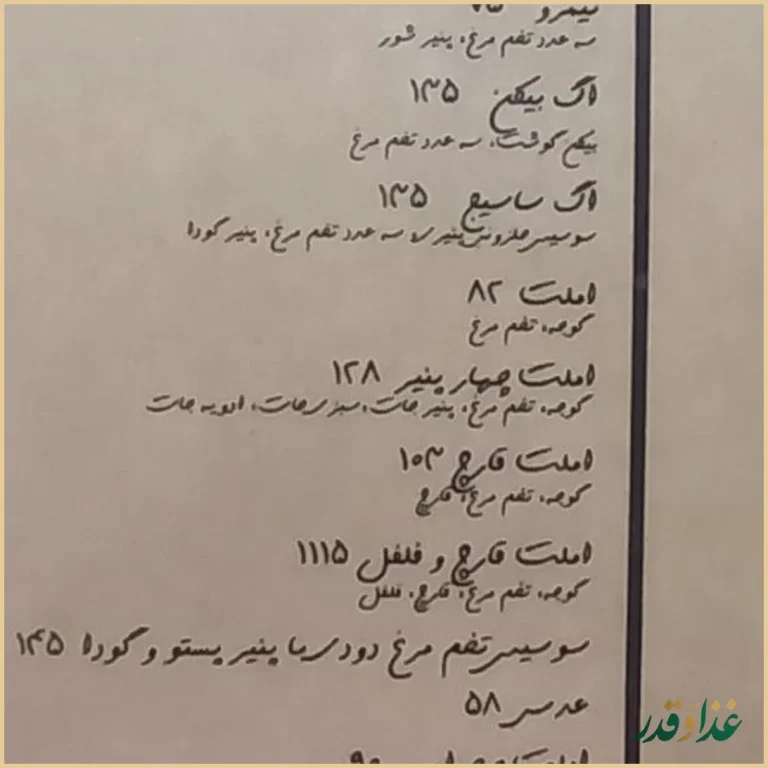 نیمرو ۷۵
سه عدد تخم مرغ، پنیر شور
اگ بیکن ۱۳۵
بیکن گوشت، سه عدد تخم مرغ
اگ ساسیج ۱۳۵
سوسیس حلزونی پنیری، سه عدد تخم مرغ، پنیر گودا
املت ۸۲
گوجه، تخم مرغ
املت چهار پنیر ۱۲۸
گوجه، تخم مرغ، پنیر جات، سبزی جات، ادویه جات
املت قارچ ۱۰۳
گوجه، تخم مرغ، قارچ
املت قارچ و فلفل ۱۱۱۵
گوجه، تخم مرغ، قارچ، فلفل
سوسیس تخم مرغ دودی با پنیر پستو و گودا ۱۴۵
عدسی ۵۸
غذا و قدر